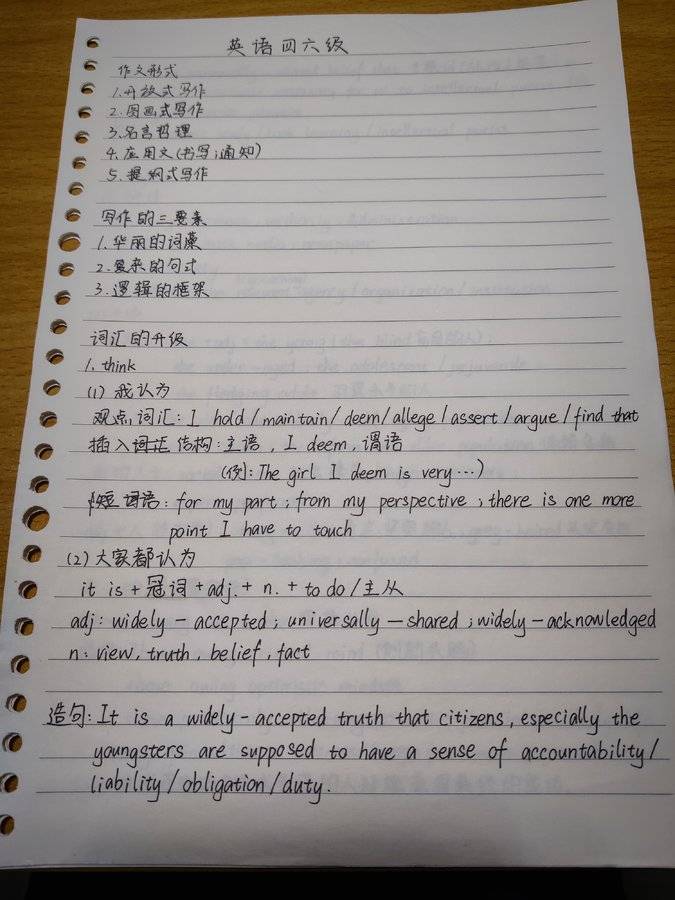 英语四六级
作文形式
1.开放式写作
2.图画式写作
3.名言哲理
4.应用文(书写;通知)
5.提纲式写作
写作的三要素
1.华丽的词藻
2.复杂的句式
3.逻辑的框架
词汇的升级
1.think
(1)我认为
观点词汇:I hold/maintain/deem/allege/assert/argue/find that
插入结构:主语,I deem,谓语
(例:The girl I deem is very…)
短语:for my part;from my perspective;there is one more
point I have to touch
(2)大家都认为
it is+冠词+adj.+n.+to do/主从
adj:widely-accepted;universally-shared;widely-acknowledged
n:view,truth,belief,fact
造句:It is a widely-accepted truth that citizens,especially the
youngsters are supposed to have a sense of accountability/
liability/obligation/duty.